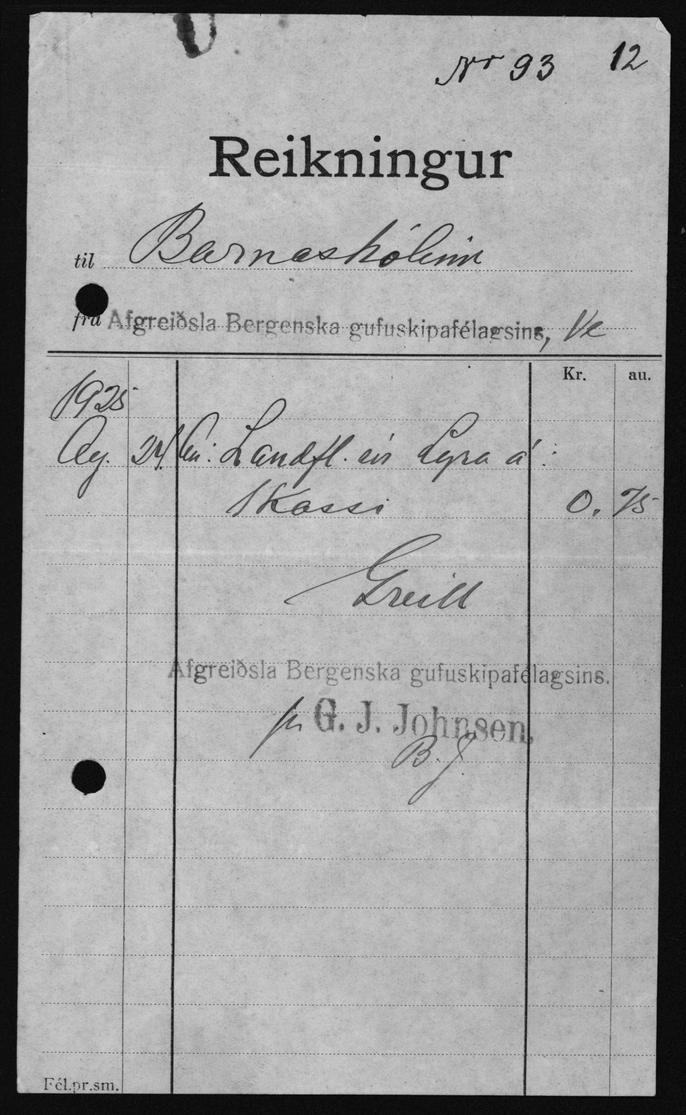 Nr 93 12
Reikningur
til Barnaskólinn
frá Afgreiðsla Bergenska gufuskipafélagsins, Ve
Kr. au.
1925
Ág. 24. Landfl. úr Lyra á:
1 Kassi 0. 75
Greitt
Afgreiðsla Bergenska gufuskipafélagsins.
pr G. J. Johnsen.
B. J.
Fél.pr.sm.